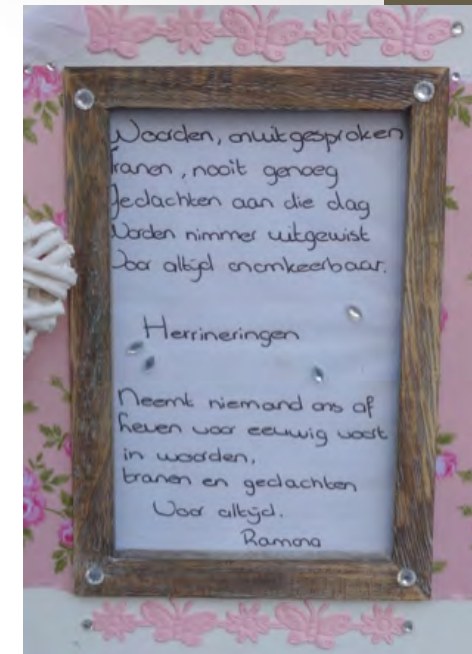 Woorden, onuitgesproken
Tranen, nooit genoeg
Gedachten aan die dag
Worden nimmer uitgewist
Voor altijd onomkeerbaar.
Herrineringen
Neemt niemand ons af
heven voor eeuwig voort
in woorden,
tranen en gedachten
Voor altijd.
Ramona